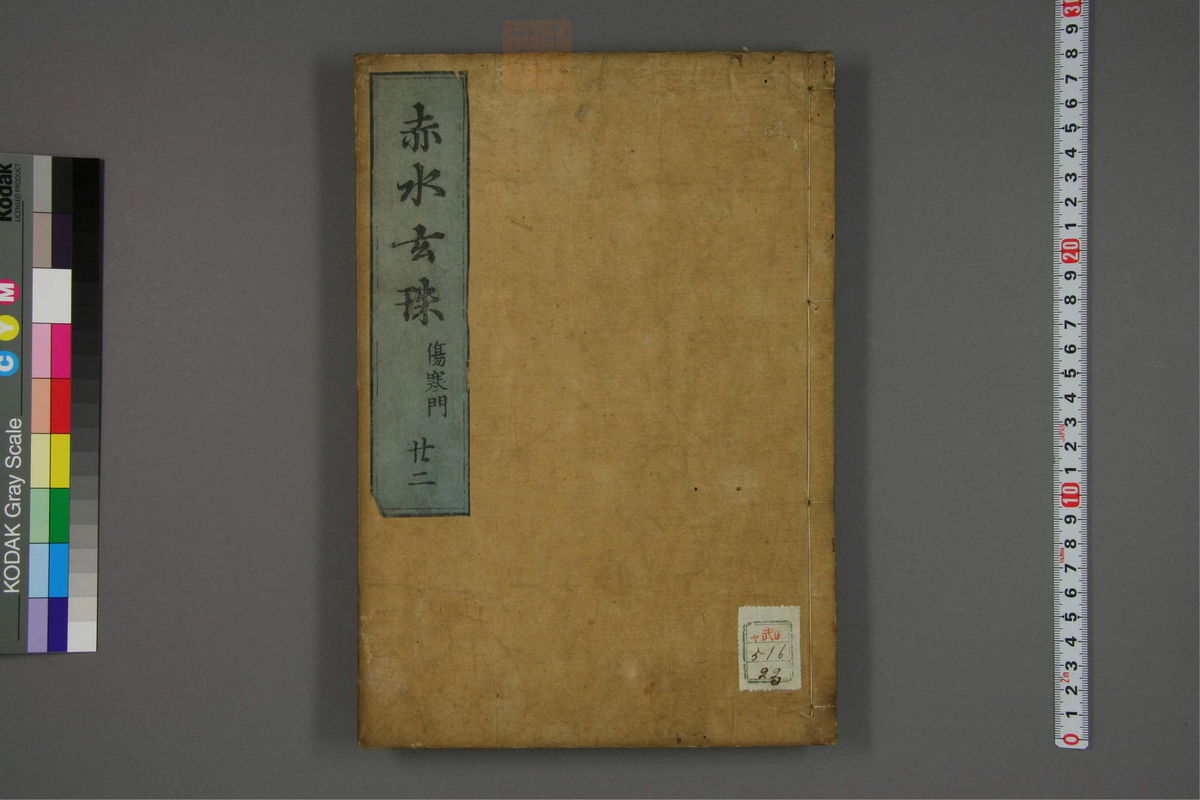 赤水玄珠
傷寒門
廿二
516
KODAK Gray Scale
Kodak
LICENSED PRODUCT
C Y M
30
9
8
7
6
5
4
3
2
1
20
9
8
7
6
5
4
3
2
1
10
9
8
7
6
5
4
3
2
1
0
2m